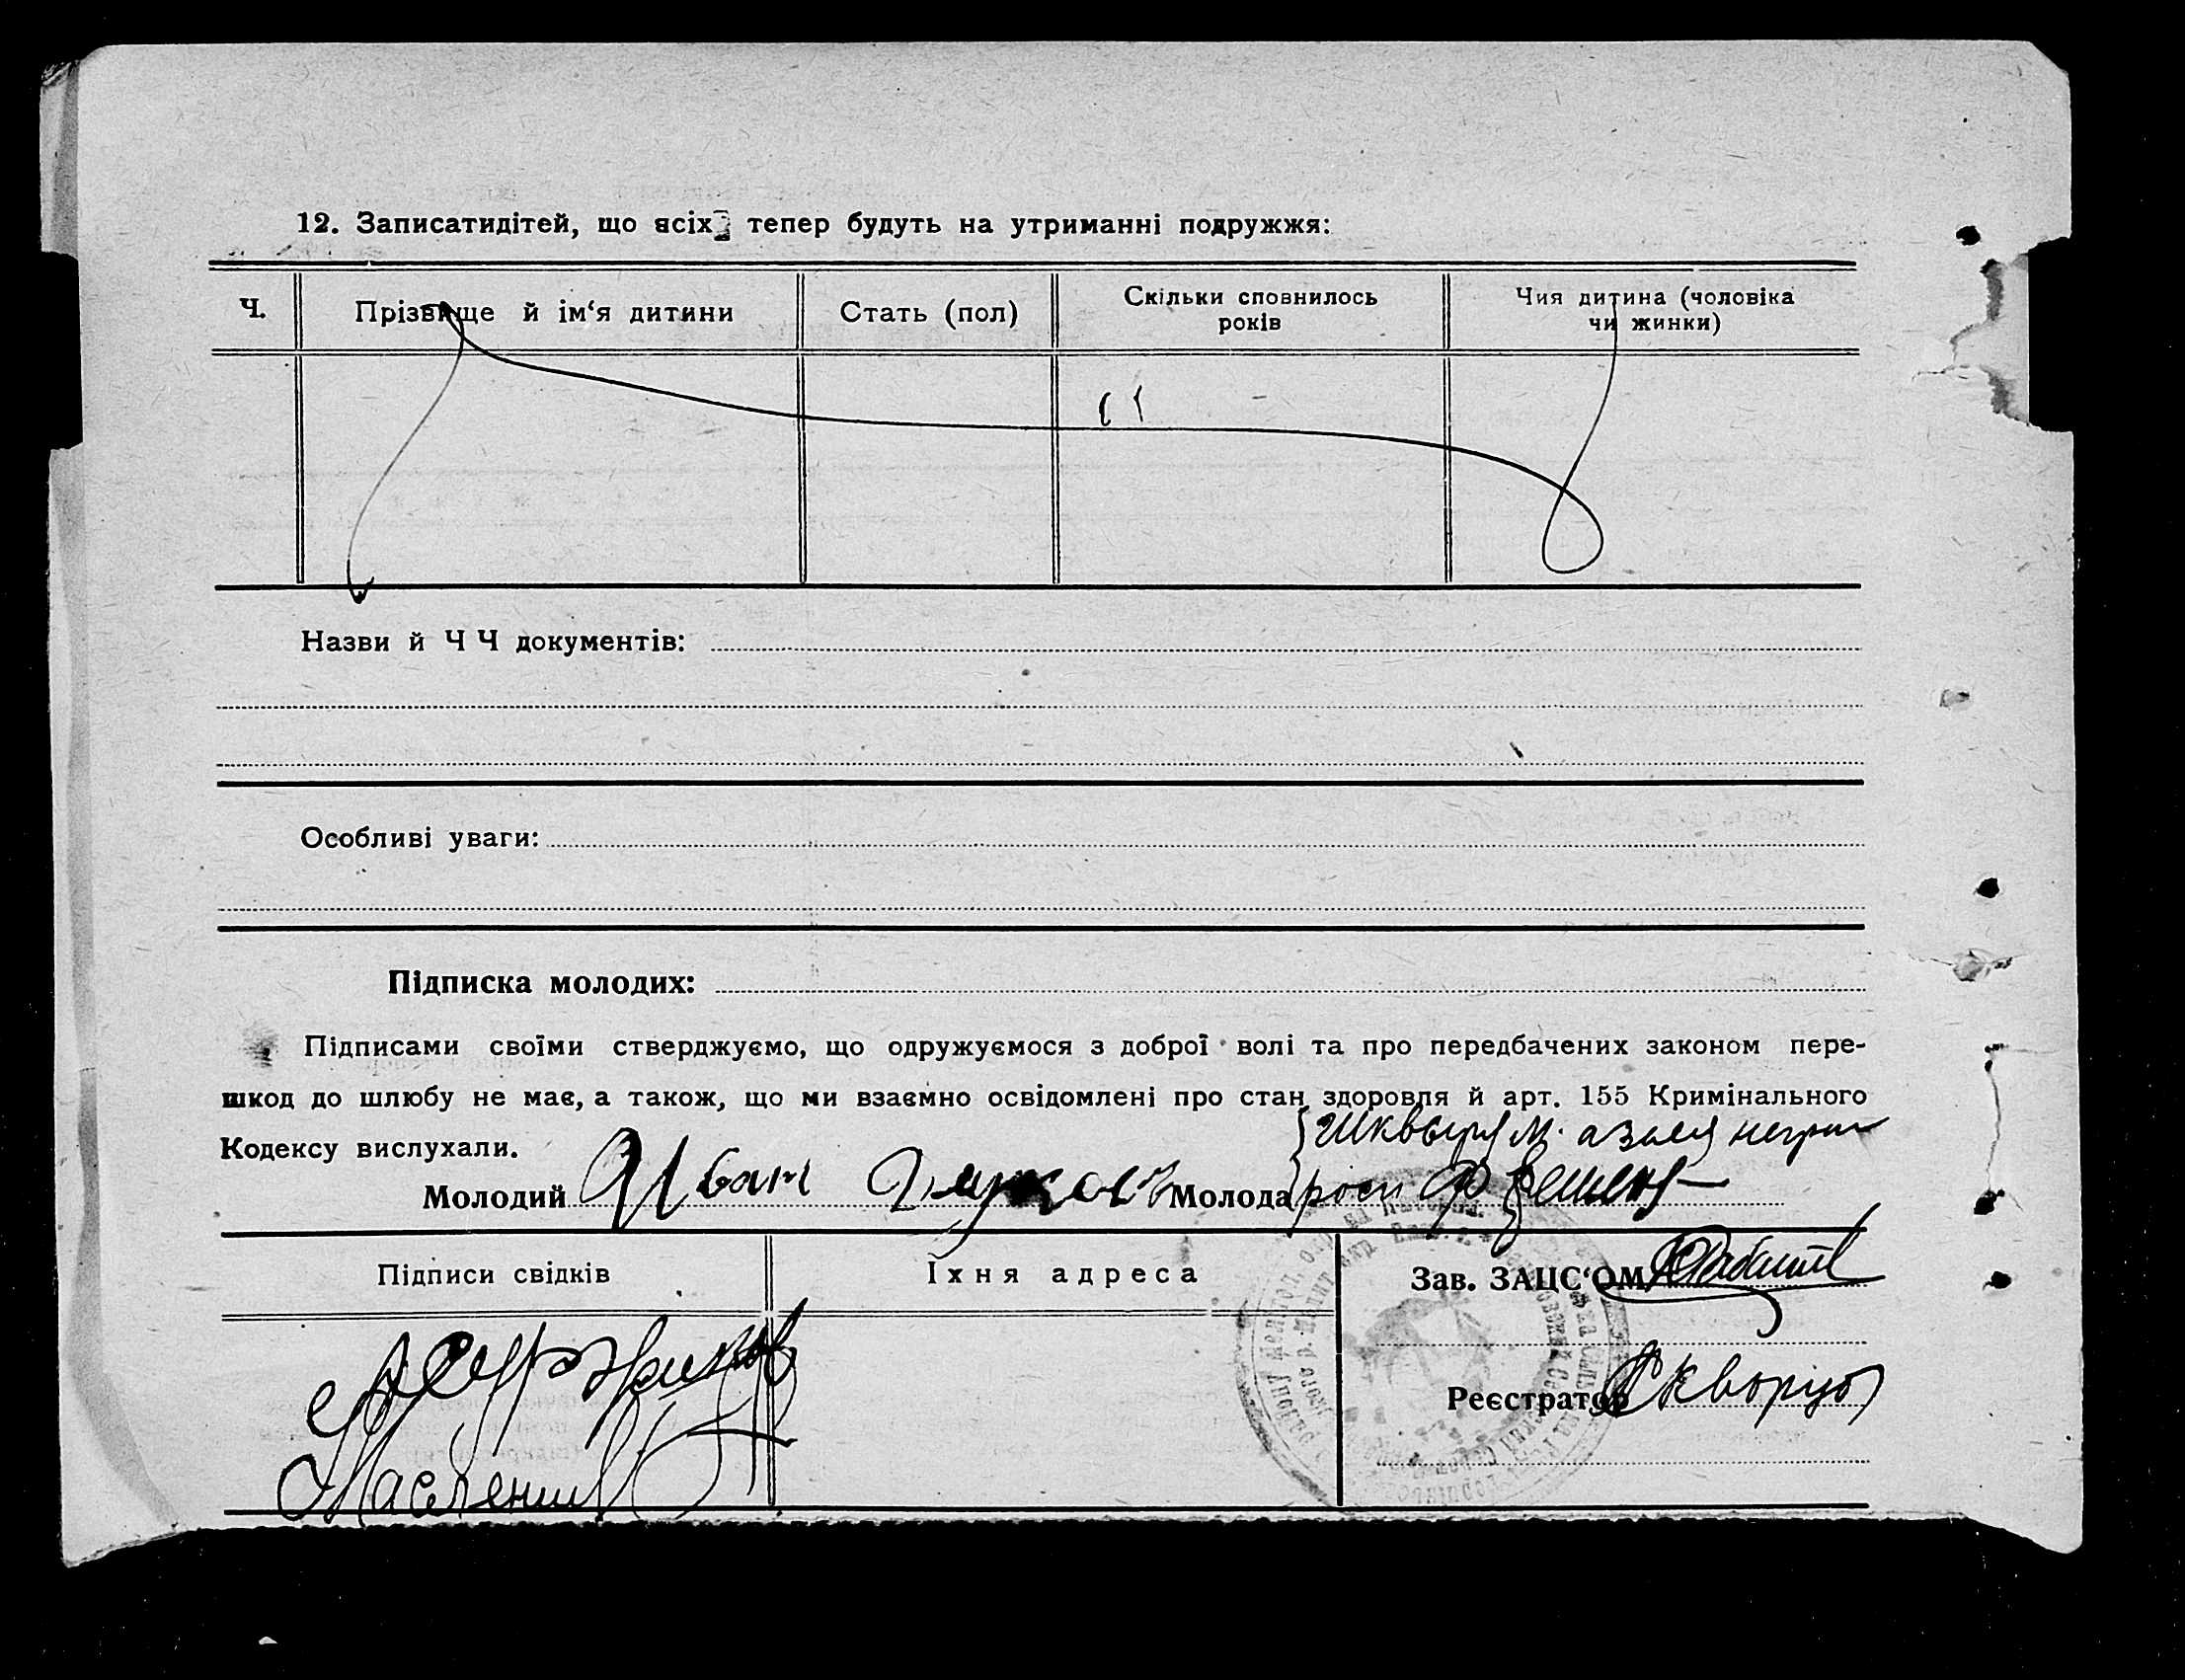 12. Записатидітей, що всіх тепер будуть на утриманні подружжя:
Ч.
Прізвище й ім‘я дитини
Стать (пол)
Скільки сповнилось
років
Чия дитина (чоловіка
чи жинки)
Назви й Ч Ч документів:
Особливі уваги:
Підписка молодих:
Підписами своїми стверджуємо, що одружуємося з доброї волі та про передбачених законом пере-
шкод до шлюбу не має, а також, що ми взаємно освідомлені про стан здоровля й арт. 155 Кримінального
Кодексу вислухали.
Молодий Иван
Молода
Підписи свідків
Їхня адреса
Зав. ЗАЦС‘ОМ
Реєстратор Скворцов